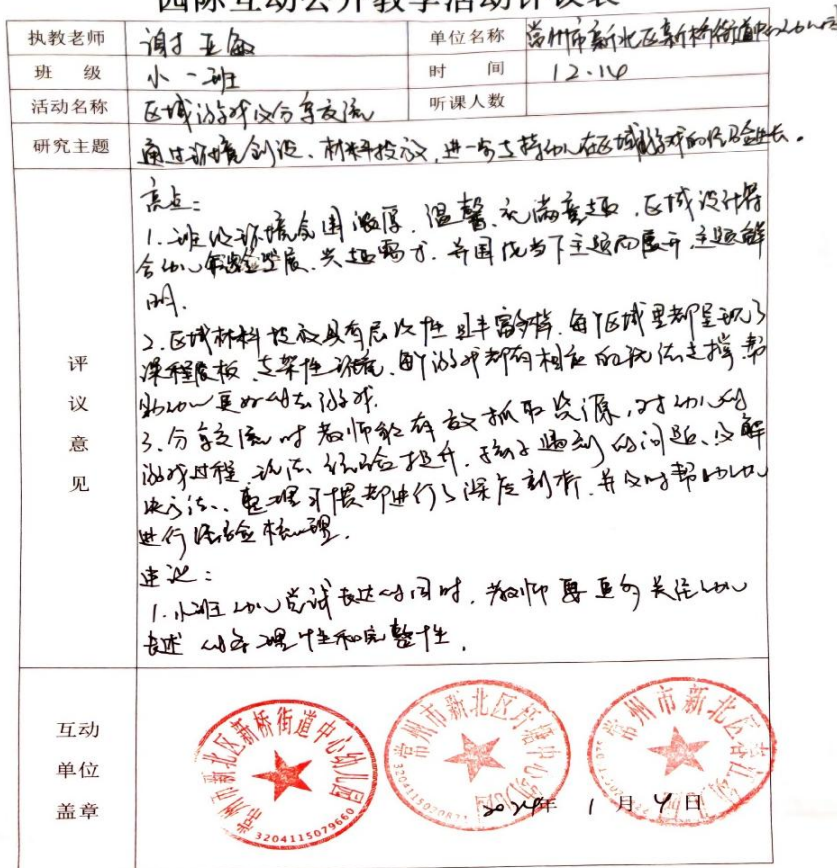 园际互动公开教学活动评议表
执教老师 谢亚敏 单位名称 常州市新北区新桥街道中心幼儿园
班 级 小一班 时 间 12.14
活动名称 区域游戏及分享交流 听课人数
研究主题 通过环境创设、材料投放,进一步支持幼儿在区域游戏的经验生长。
评议意见
亮点:
1.班级环境氛围浓厚、温馨、充满童趣,区域设计符
合幼儿年龄发展、兴趣需求,并围绕当下主题而展开,主题鲜
明。
2.区域材料投放具有层次性且丰富多样,每个区域里都呈现了
课程展板、支架性环境,每个游戏都有相应的玩法支撑帮
助幼儿更好的去游戏。
3.分享交流时教师能有效抓取资源,对幼儿的
游戏过程、玩法、经验提升、孩子遇到的问题、及解
决方法、整理习惯都进行了深度剖析,并及时帮助幼儿
进行经验梳理。
建议:
1.小班幼儿尝试表达的同时,教师要更多关注幼儿
表述的条理性和完整性。
互动单位盖章
常州市新北区新桥街道中心幼儿园
3204115079660
常州市新北区 中心幼儿园
常州市新北区
2024年 1 月 4 日